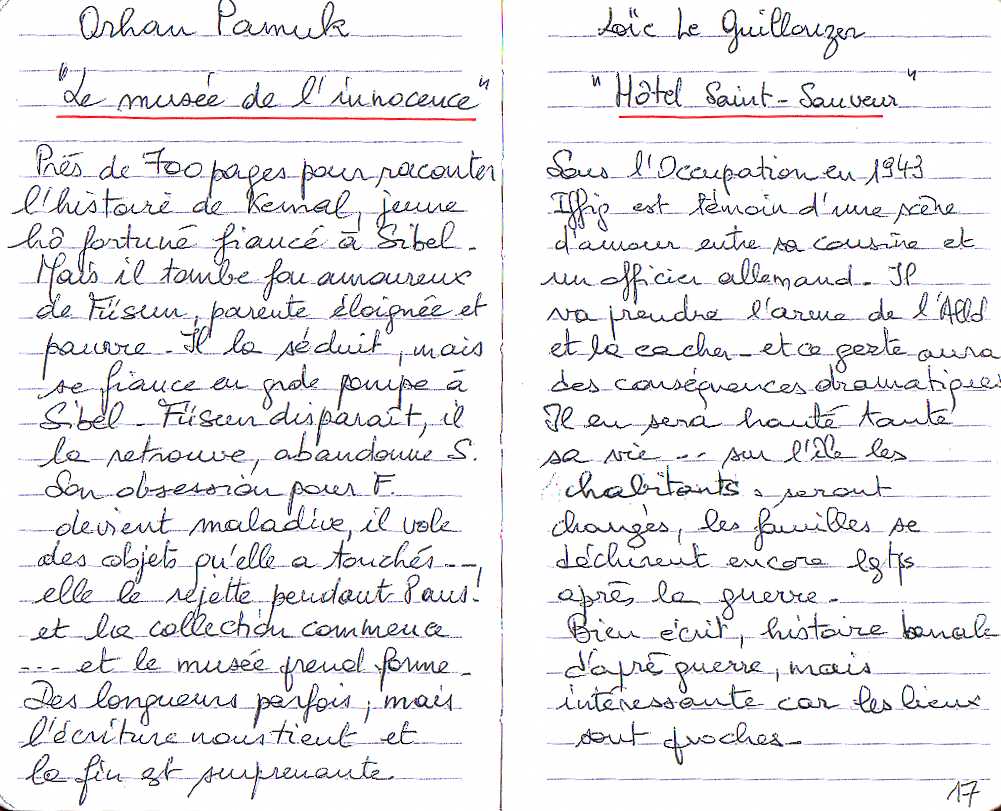 Orhan Pamuk
"Le musée de l'innocence"
Près de 700 pages pour raconter
l'histoire de Kemal, jeune
hô fortuné fiancé à Sibel.
Mais il tombe fou amoureux
de Füsun, parente éloignée et
pauvre. Il la séduit, mais
se fiance en gde pompe à
Sibel. Füsun disparaît, il
la retrouve, abandonne S.
Son obsession pour F.
devient maladive, il vole
des objets qu'elle a touchés --,
elle le rejette pendant 8 ans!
et la collection commence
--- et le musée prend forme.
Des longueurs parfois, mais
l'écriture nous tient et
la fin est surprenante.
Loïc Le Guillouzer
"Hôtel Saint-Sauveur"
Sous l'Occupation en 1943
Iffig est témoin d'une scène
d'amour entre sa cousine et
un officier allemand. Il
va prendre l'arme de l'Alld
et la cacher - et ce geste aura
des conséquences dramatiques
Il en sera hanté toute
sa vie -- sur l'île les
habitants seront
changés, les familles se
déchirent encore lgtps
après la guerre.
Bien écrit, histoire banale
d'après guerre, mais
intéressante car les lieux
sont proches.
17